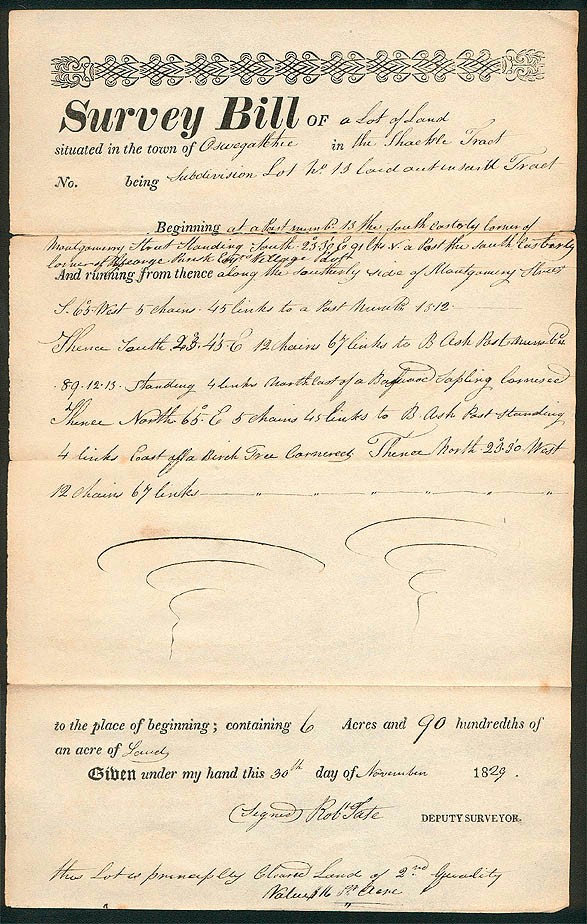 Survey Bill OF a Lot of Land
situated in the town of Oswegatchie in the Shackle Tract
No. being Subdivision Lot No 13 laid out in said Tract
Beginning at a Post numbr. 13 the south Easterly corner of
Montgomery Street Standing South 23.30 E 91 lks & a Post the south Easterly
corner of George
And running from thence along the southerly side of Montgomery Street
S. 65 West 5 chains 45 links to a Post Numbr. 1312
Thence South 23.45 E 12 Chains 67 links to B Ash Post
89.12.13. Standing 4 links North East of a Basswood Sapling Cornered
Thence North 65° E 5 chains 45 links to B. Ash Post standing
4 links East of a Birch Tree Cornered Thence North 23.30 West
12 chains 67 links
to the place of beginning; containing 6 Acres and 90 hundredths of
an acre of Land
Given under my hand this 30th day of November 1829.
(Signed) Robt Tate DEPUTY SURVEYOR.
this Lot is principly Cleared Land of 2nd Quality
Value pr Acre